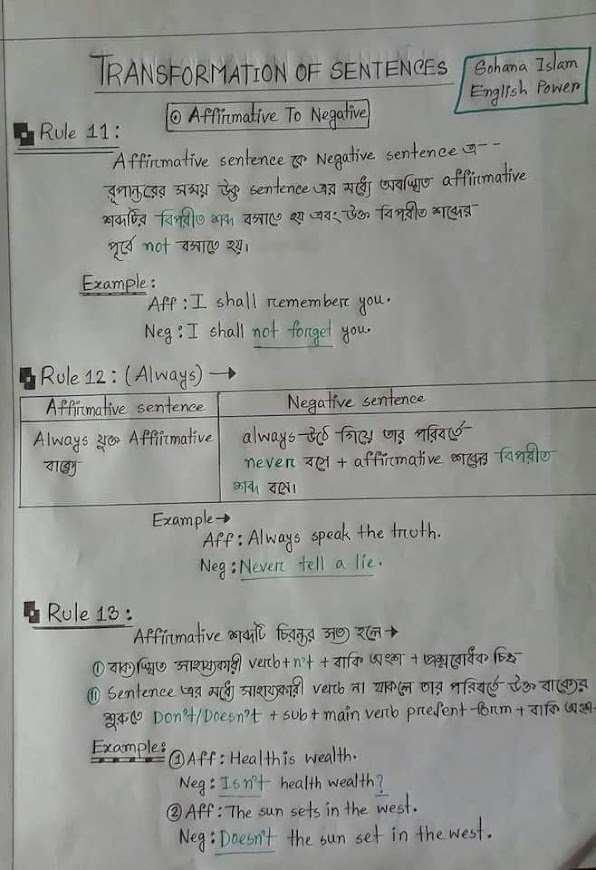 TRANSFORMATION OF SENTENCES
Sohana Islam
English Power
⊙ Affirmative To Negative
Rule 11:
Affirmative sentence কে Negative sentence এ--
রূপান্তরের সময় উক্ত sentence এর মধ্যে অবস্থিত affirmative
শব্দটির বিপরীত শব্দ বসাতে হয় এবং উক্ত বিপরীত শব্দের
পূর্বে not বসাতে হয়।
Example:
Aff: I shall remember you.
Neg: I shall not forget you.
Rule 12: (Always) →
Affirmative sentence
Negative sentence
Always যুক্ত Affirmative
বাক্যে
always উঠে গিয়ে তার পরিবর্তে
never বসে + affirmative শব্দের বিপরীত
শব্দ বসে।
Example→
Aff: Always speak the truth.
Neg: Never tell a lie.
Rule 13:
Affirmative শব্দটি চিরন্তর সত্য হলে→
① বাক্যস্থিত সাহায্যকারী verb+n't + বাকি অংশ + প্রশ্নবোধক চিহ্ন
⑪ Sentence এর মধ্যে সাহায্যকারী verb না থাকলে তার পরিবর্তে উক্ত বাক্যের
শুরুতে Don't/Doesn't + sub + main verb present form + বাকি অংশ
Example:
① Aff: Health is wealth.
Neg: Isn't health wealth?
② Aff: The sun sets in the west.
Neg: Doesn't the sun set in the west.